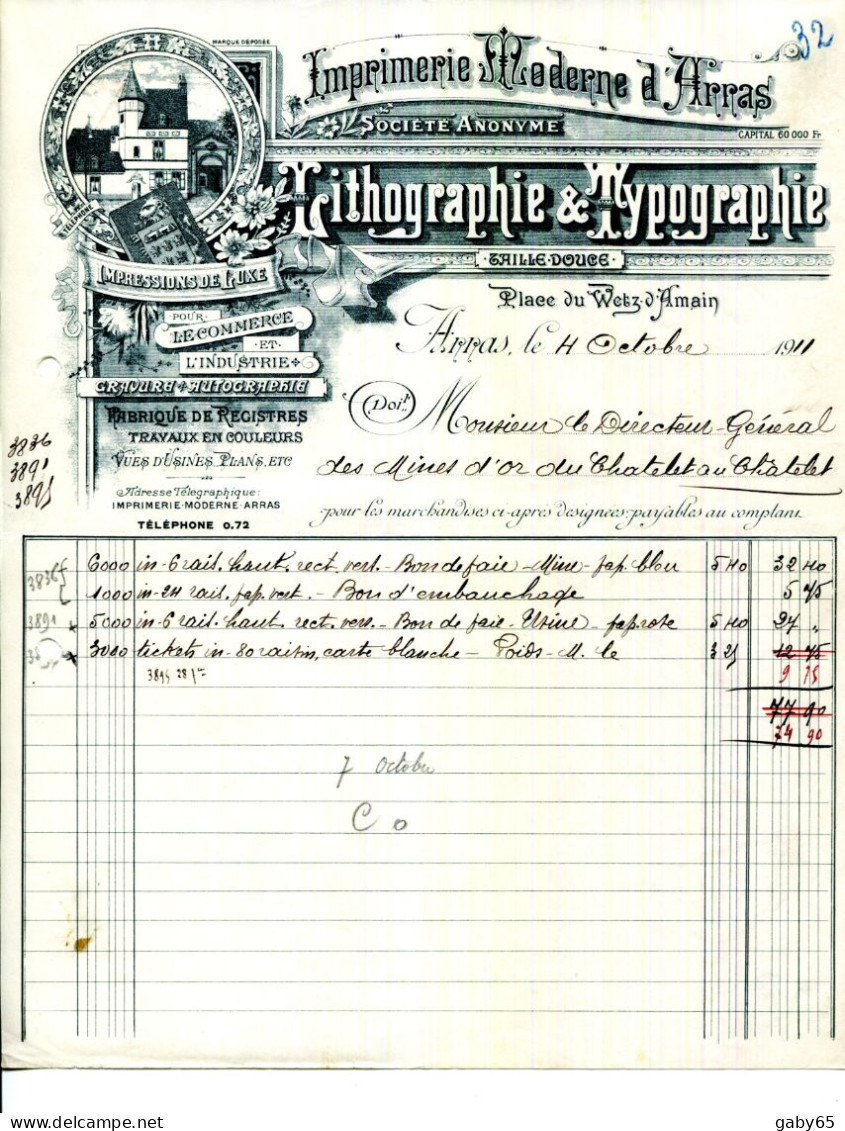 32
MARQUE DÉPOSÉE
Imprimerie Moderne d'Arras
SOCIÉTÉ ANONYME
CAPITAL 60 000 Fr
Lithographie & Typographie
TÉLÉPHONE
TAILLE-DOUCE
IMPRESSIONS DE LUXE
Place du Wetz-d'Amain
POUR
LE COMMERCE
ET
L'INDUSTRIE
Arras, le 4 Octobre 1911
GRAVURE AUTOGRAPHIE
Doit
Monsieur le Directeur-Général
FABRIQUE DE REGISTRES
TRAVAUX EN COULEURS
3836
3891
3895
VUES D'USINES, PLANS, ETC
des Mines d'or du Chatelet au Châtelet
Adresse Télégraphique:
IMPRIMERIE-MODERNE-ARRAS
pour les marchandises ci-après désignées payables au comptant
TÉLÉPHONE 0.72
3836 6000 in-6 rais. haut. rect. vert. - Bon de paie - Mine - pap. bleu 5 40 32 40
1000 in-24 rais. pap. vert. - Bon d'embauchage 5 75
3891 x 5000 in-6 rais. haut. rect. vers. - Bon de paie - Usine - pap. rose 5 40 27 "
x 3000 tickets in-80 raisin, carte blanche - Poids - M. le 3 25 12 75
3895 9 75
77 90
74 90
7 Octobre
C o
delcampe.net
gaby65